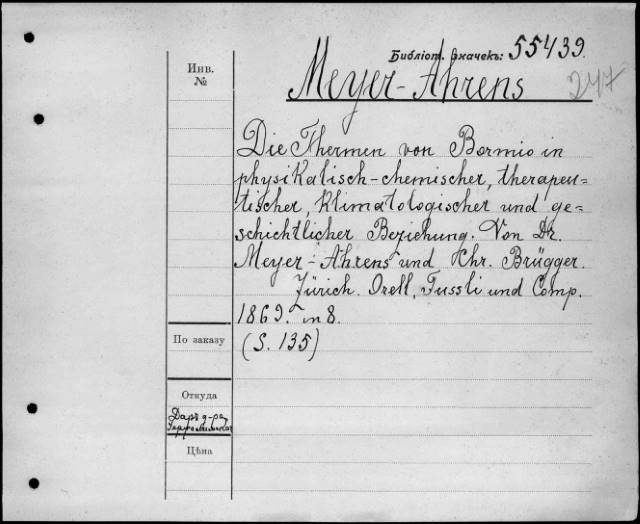 Библіот. значекъ: 55439.
Инв.
№
Meyer-Ahrens
247
Die Thermen von Bormio in
physikalisch-chemischer, therapeu=
tischer, klimatologischer und ge=
schichtlicher Beziehung. Von Dr.
Meyer-Ahrens und Chr. Brügger.
Zürich. Orell, Fussli und Comp.
1869. in 8.
По заказу
(S. 135)
Откуда
Даръ д-ра
Цѣна